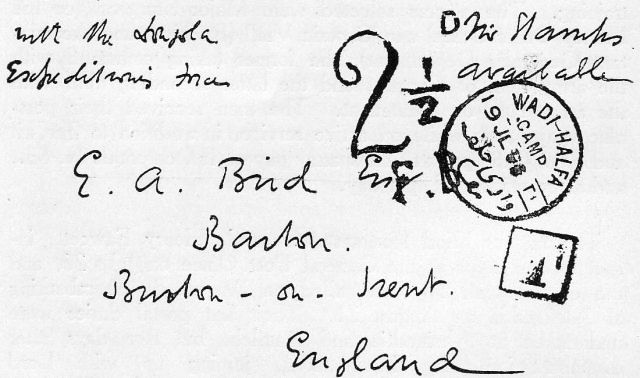 with the Dongola
Expeditionary Force
No Stamps
available
2 1/2
WADI-HALFA
CAMP
19 JL
وادي حلفا
E. A. Bird Esq.
Barton.
Burton - on - Trent.
England